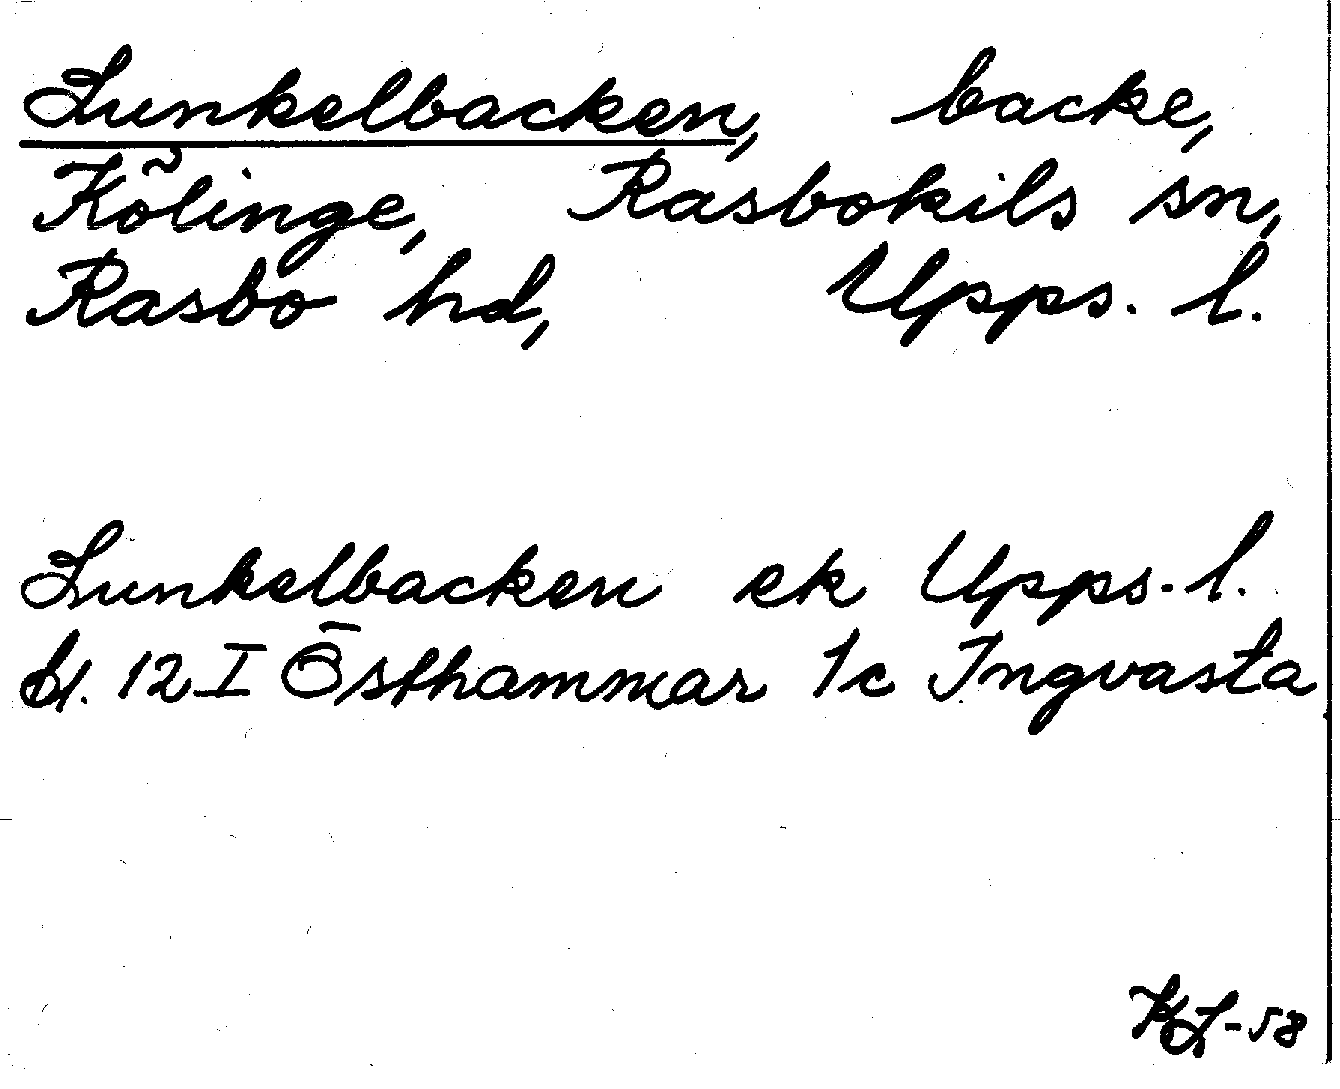 Lunkelbacken, backe,
Kölinge, Rasbokils sn,
Rasbo hd, Upps. l.
Lunkelbacken ek Upps. l.
bl. 12 I Östhammar 1c Ingvasta
KL-58